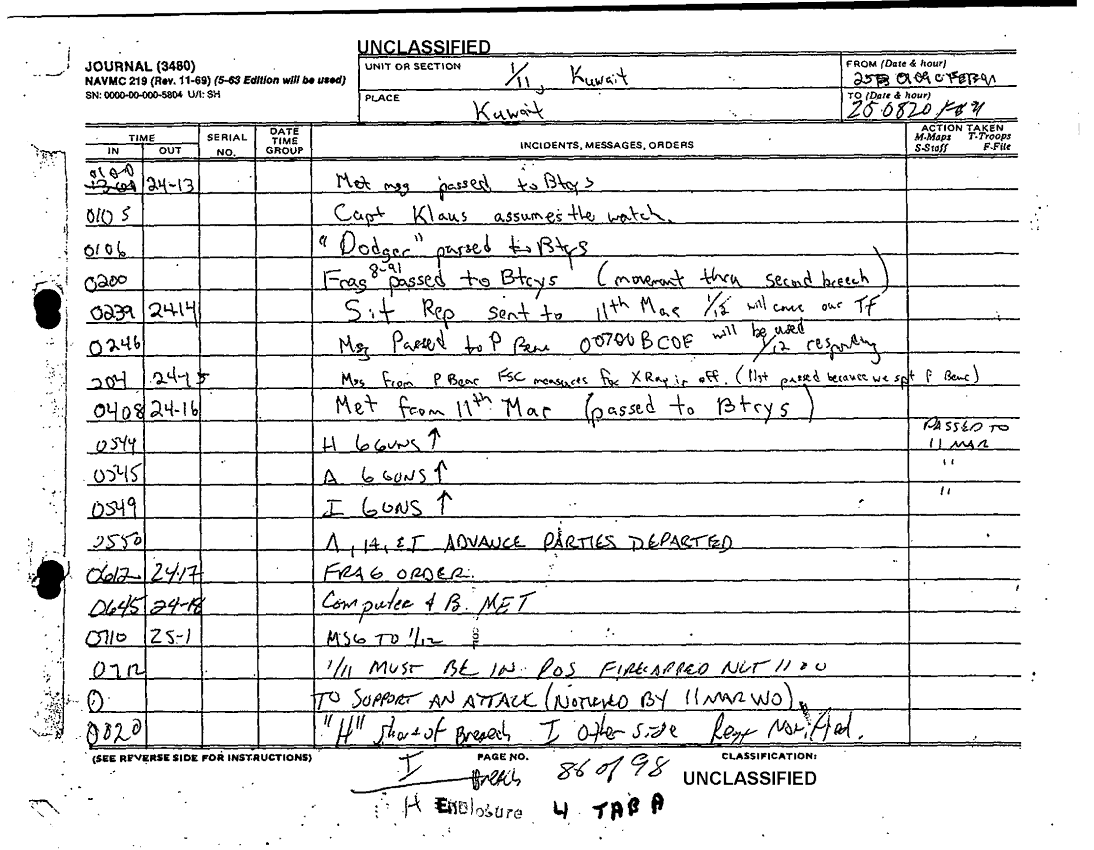 UNCLASSIFIED
JOURNAL (3480)
NAVMC 219 (Rev. 11-69) (5-63 Edition will be used)
SN: 0000-00-000-5804 U/I: SH
UNIT OR SECTION
1/11, Kuwait
FROM (Date & hour)
PLACE
Kuwait
TO (Date & hour)
250820
TIME
IN OUT
SERIAL NO.
DATE TIME GROUP
INCIDENTS, MESSAGES, ORDERS
ACTION TAKEN
M-Maps T-Troops
S-Staff F-File
24-13 Met msg passed to Btrys
0105 Capt Klaus assumes the watch.
0106 "Dodger" passed to Btrys
0200 Frag 8-91 passed to Btrys (movement thru second breech)
0239 2414 Sit Rep sent to 11th Mar 1/12 will our TF
0246 Msg Passed to P Benc will be used 1/12
204 24-15 Msg from P Benc FSC measures for X Ray is off. (Not passed because we spt P Benc)
0408 24-16 Met from 11th Mar (passed to Btrys)
0544 H 6 GUNS ↑ PASSED TO 11 MAR
0545 A 6 GUNS ↑ "
0549 I 6 GUNS ↑ "
0550 A, H, & I ADVANCE PARTIES DEPARTED
0612 2417 FRAG ORDER.
0645 24-18 Computer & B. MET
0710 25-1 MSG TO 1/12
0712 1/11 MUST BE IN POS NLT 1100
TO SUPPORT AN ATTACK (NOTIFIED BY 11 MAR WO)
0820 "H" short of Breech I other side Regt Notified.
(SEE REVERSE SIDE FOR INSTRUCTIONS)
PAGE NO.
86 of 98
CLASSIFICATION:
UNCLASSIFIED
I
Breach
H Enclosure 4 TAB A